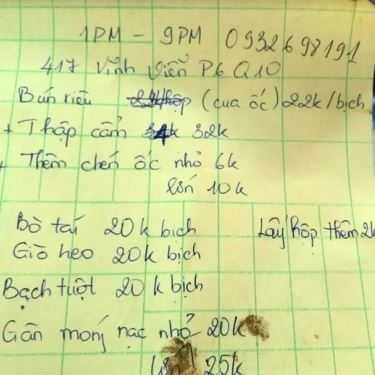 1PM - 9PM 0932698191
417 Vĩnh Viễn P6 Q10
Bún riêu (cua ốc) 22k/bịch
+ Thập cẩm 32k
+ Thêm chén ốc nhỏ 6k
lớn 10k
Bò tái 20k bịch Lấy hộp thêm 2k
Giò heo 20k bịch
Bạch tuột 20k bịch
Gân móng nạc nhỏ 20k
lớn 25k